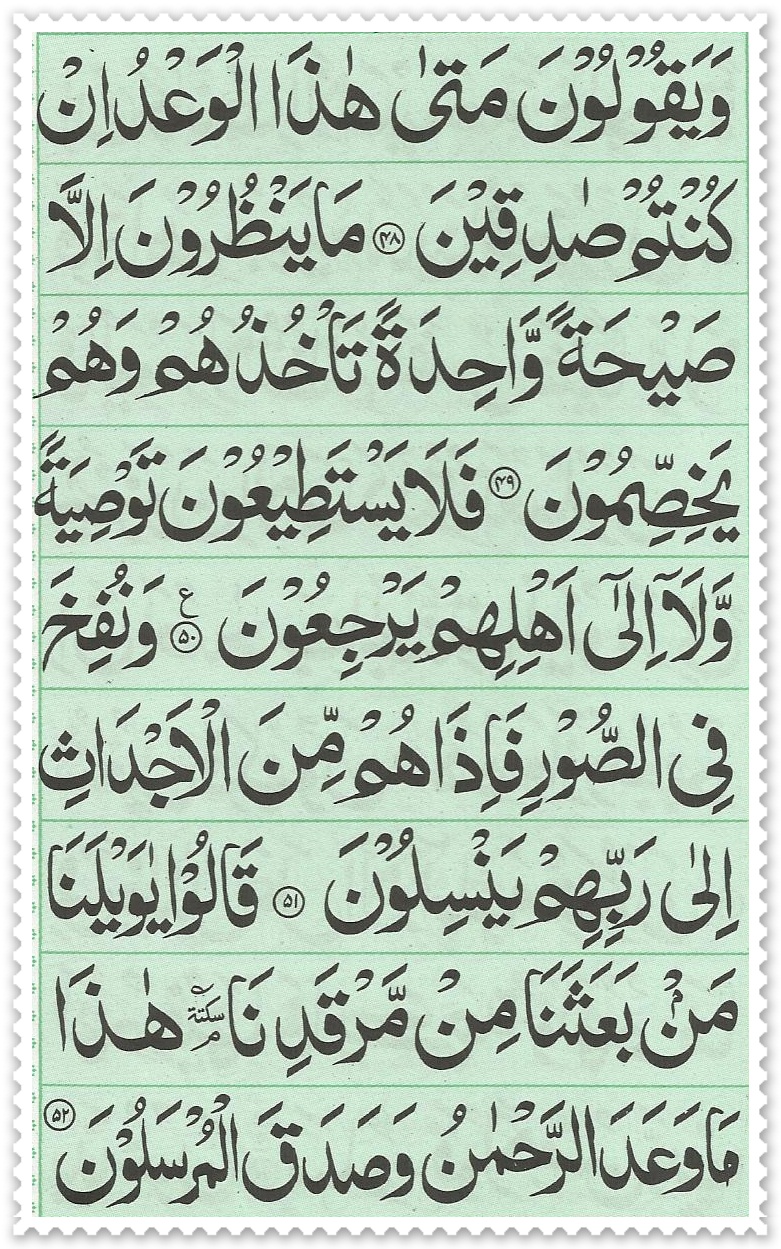 وَيَقُوْلُوْنَ مَتٰى هٰذَا الْوَعْدُ اِنْ
كُنْتُمْ صٰدِقِيْنَ ۴۸ مَا يَنْظُرُوْنَ اِلَّا
صَيْحَةً وَّاحِدَةً تَاْخُذُهُمْ وَهُمْ
يَخِصِّمُوْنَ ۴۹ فَلَا يَسْتَطِيْعُوْنَ تَوْصِيَةً
وَّلَآ اِلٰٓى اَهْلِهِمْ يَرْجِعُوْنَ ۵۰ ع وَنُفِخَ
فِى الصُّوْرِ فَاِذَا هُمْ مِّنَ الْاَجْدَاثِ
اِلٰى رَبِّهِمْ يَنْسِلُوْنَ ۵۱ قَالُوْا يٰوَيْلَنَا
مَنْۢ بَعَثَنَا مِنْ مَّرْقَدِنَا سكتة هٰذَا
مَا وَعَدَ الرَّحْمٰنُ وَصَدَقَ الْمُرْسَلُوْنَ ۵۲